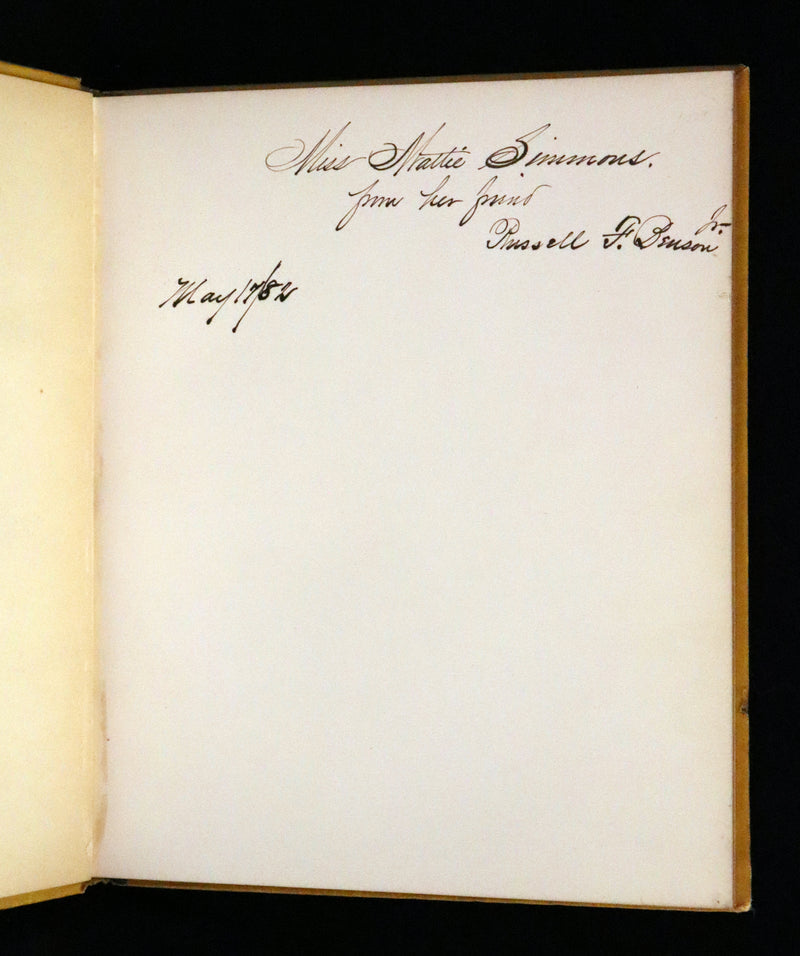 Miss Mattie Simmons.
from her friend
Russell F. Benson Jr.
May 17/82